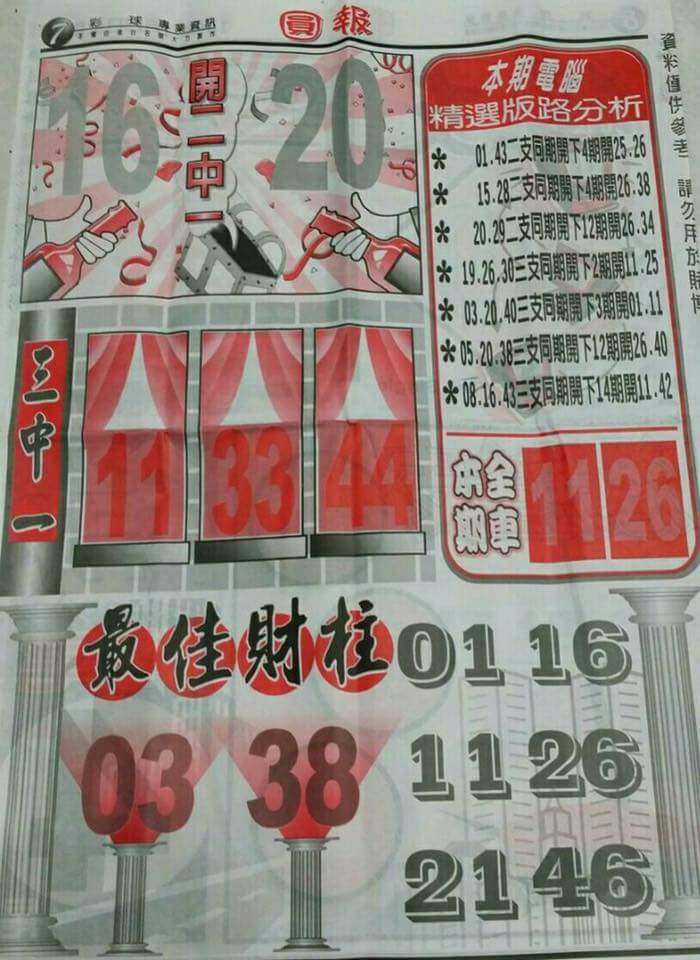 7 彩球專業資訊
圓報
資料僅供參考 請勿用於財
16 開二中一 20
本期電腦
精選版路分析
* 01.43二支同期開下4期開25.26
* 15.28二支同期開下4期開26.38
* 20.29二支同期開下12期開26.34
* 19.26.30三支同期開下2期開11.25
* 03.20.40三支同期開下3期開01.11
* 05.20.38三支同期開下12期開26.40
* 08.16.43三支同期開下14期開11.42
三中一
11 33 44
本期全車 11 26
最佳財柱
03 38
01 16
11 26
21 46